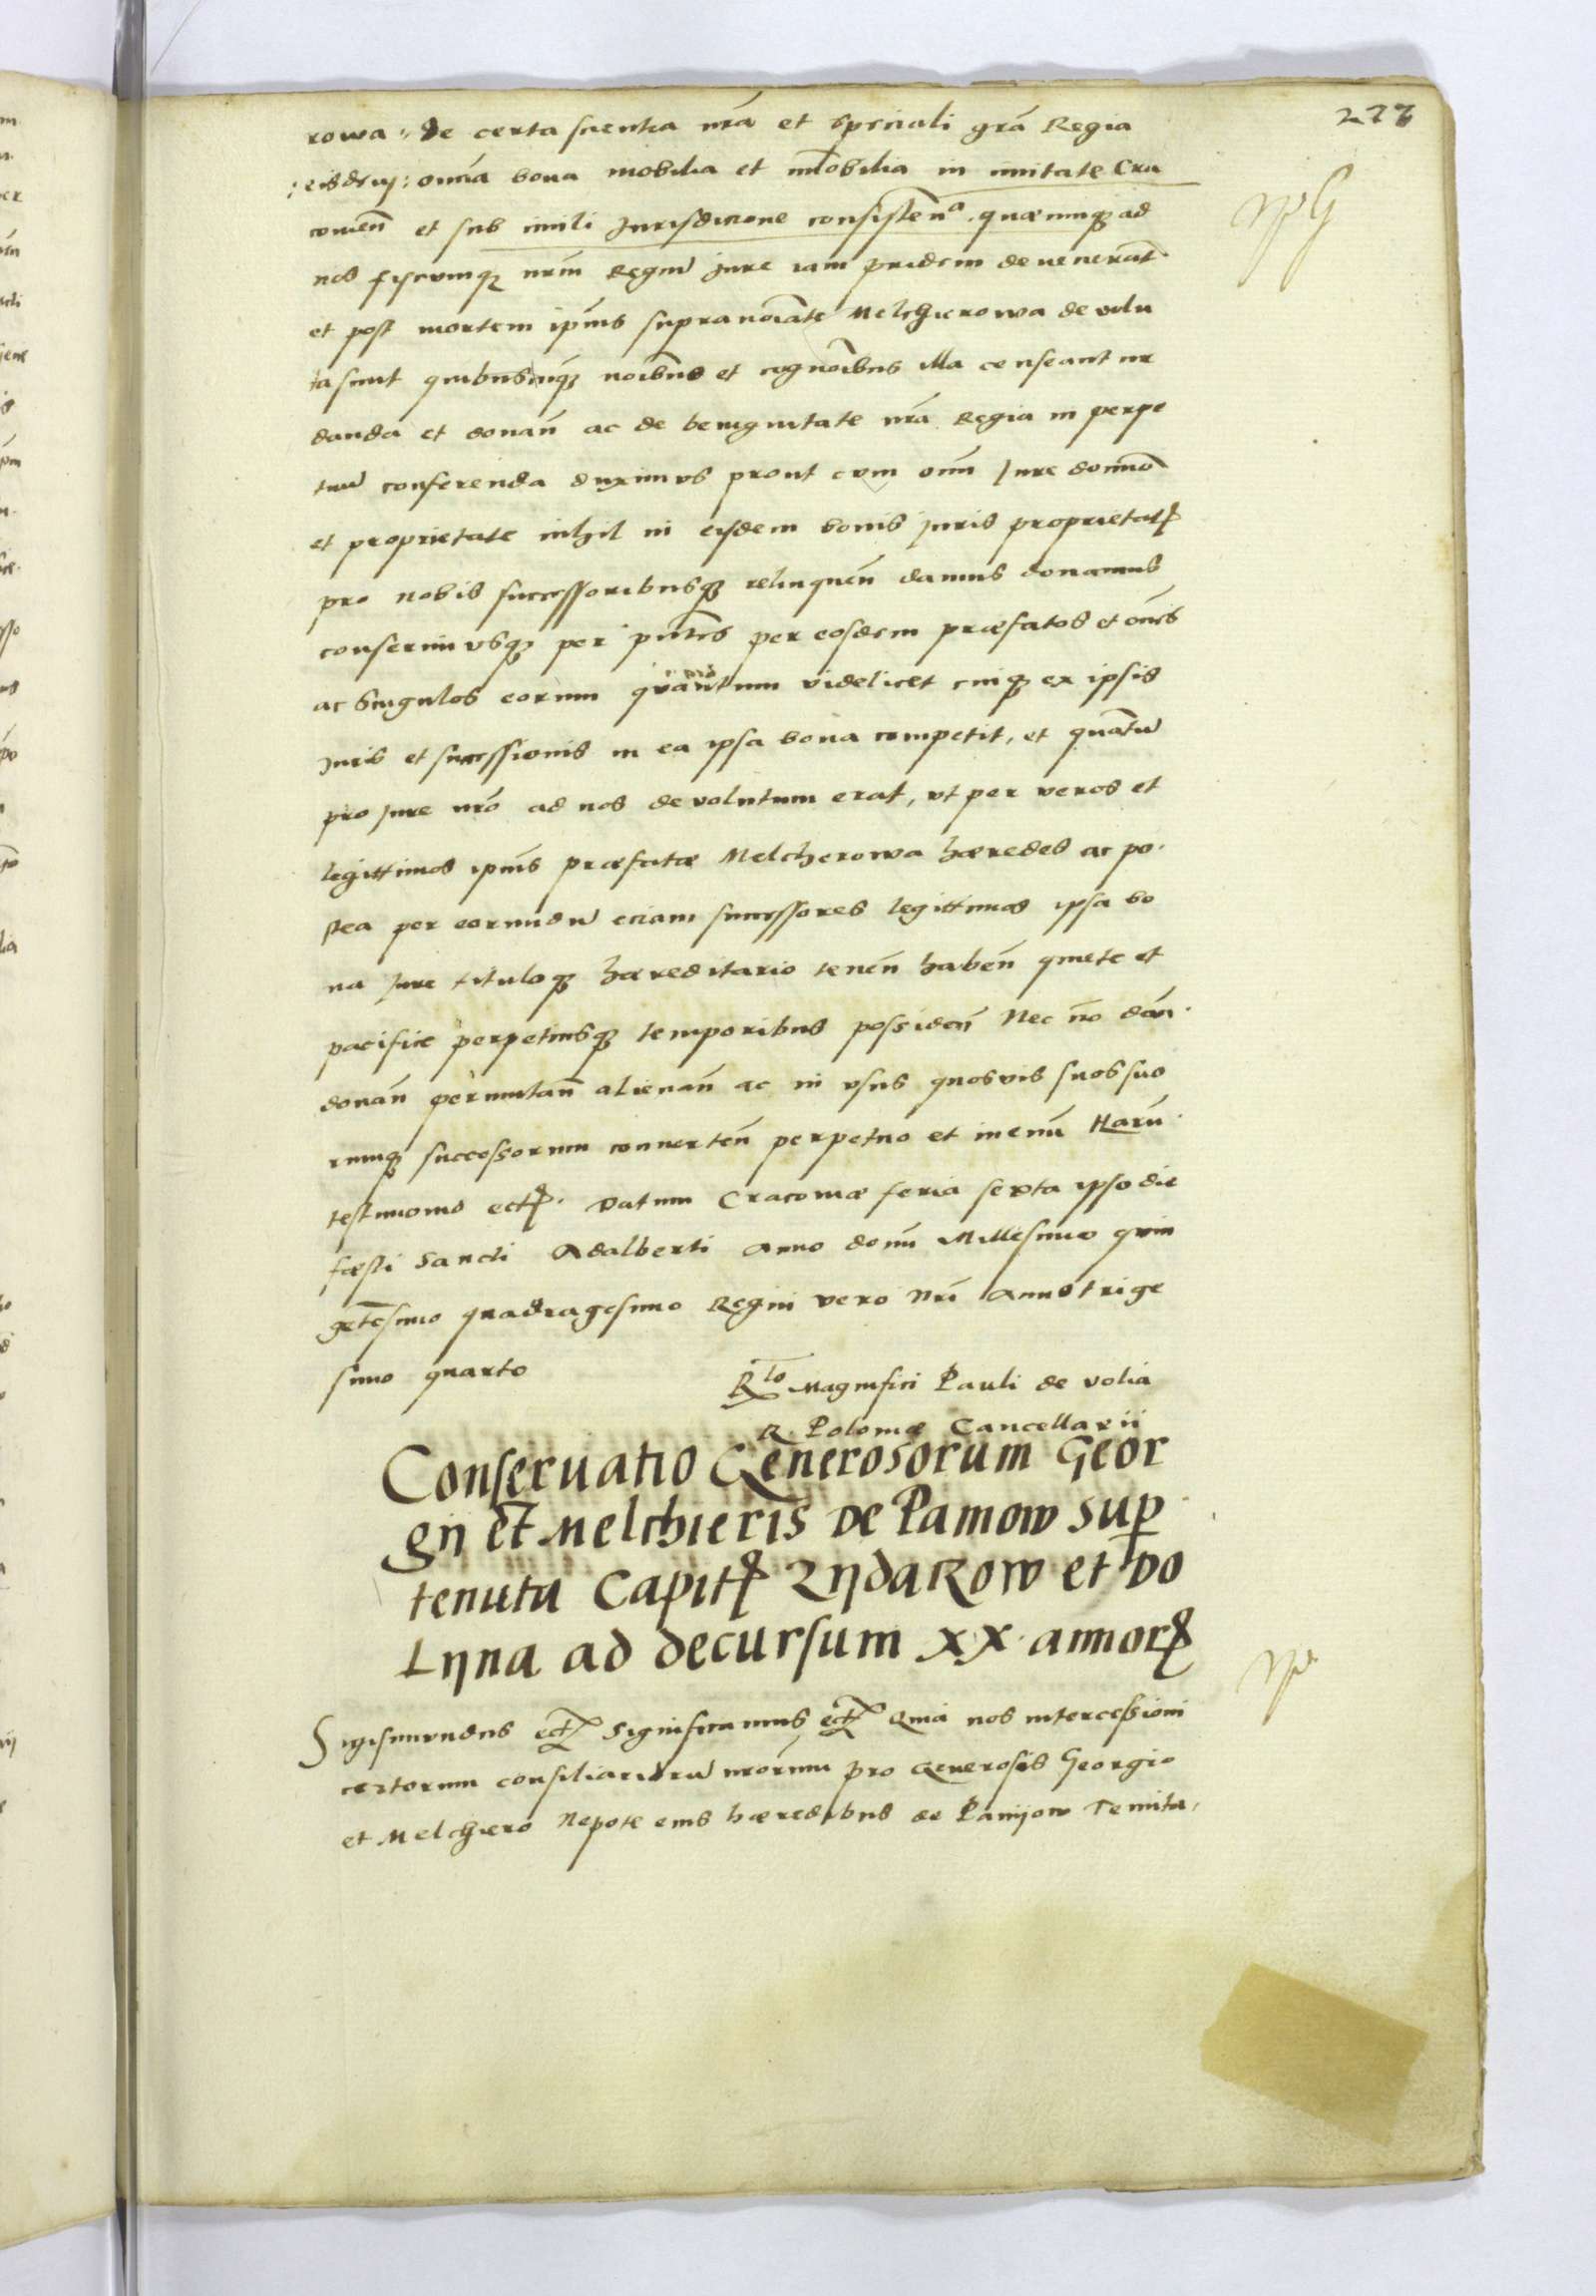 277
rowa :, de certa scientia nr̃a et speciali gr̃a Regia
: eisdem : om̃ia bona mobilia et im̃obilia in ciuitate Cra
couien̄ et sub ciuili Jurisdicione consisten̄a quæcunq; ad
nos fiscumq; nr̃m Regiū Jure iam pridem deuenerãt
et post mortem ip̃ius supranoĩate Melchierowa deuolu
ta sunt quibuscũq; noĩbus et cognoĩbus illa censeantur
danda et donan̄ ac de benignitate nr̃a Regia in perpe
tuū conferenda duximus prout cum om̃i Jure dominio
et proprietate nihil in eisdem bonis Juris proprietatis
pro nobis successoribusq; relinquen̄ damus donamus
conferimusq; per pñtes per eosdem præfatos et om̃es
ac singulos eorum quantum videlicet cuiq; ex ipsis
Juris et successionis in ea ipsa bona competit, et quãtū
pro Jure nr̃o ad nos deuolutum erat, vt per veros et
legittimos ip̃ius præfatæ Melcherowa hæredes ac po
stea per eorundū eciam successores legittimos ipsa bo
na Jure tituloq; hæreditario tenen̄ haben̄ quiete et
pacifice perpetuisq; temporibus possiden̄ Nec nō dan̄
donan̄ permutan̄ alienan̄ ac in vsus quosvis suos suo
rumq; successorum conuerten̄ perpetuo et in euū Harū
testimonio ect. Datum Cracouiæ feria sexta ipso die
fæsti Sancti Adalberti Anno domi Millesimo quin
gētesimo quadragesimo Regni vero Nr̃i Anno trige
simo quarto
Rlo Magnifici Pauli de volia
R. Poloniæ Cancellarii
Conseruatio Generosorum Geor
gij et Melchieris de Pamow sup
tenuta Capit Rydarow et Do
Lyna ad decursum XX annor
Sigismundus ect Significamus ect Quia nos intercessioni
certorum consiliariorū nr̃orum pro Generosis Georgio
et Melchiero Nepote eius hæredibus de Panijow Tenuta